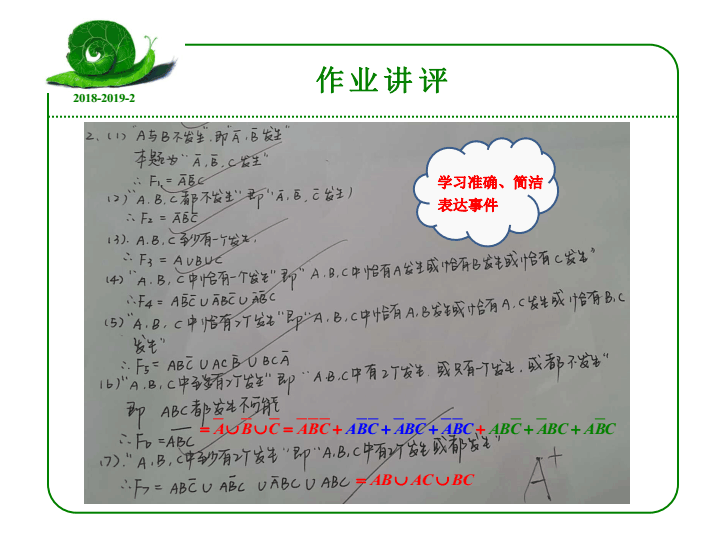 作业讲评
2018-2019-2
学习准确、简洁
表达事件
2. (1) "A与B不发生",即"A̅,B̅发生"
本题为"A̅,B̅,C发生"
∴ F₁ = A̅B̅C
(2) "A,B,C都不发生"即"A̅,B̅,C̅发生)
∴ F₂ = A̅B̅C̅
(3). A,B,C至少有一个发生,
∴ F₃ = A∪B∪C
(4) "A,B,C中恰有一个发生"即"A,B,C中恰有A发生或恰有B发生或恰有C发生"
∴F₄ = AB̅C̅∪A̅BC̅∪A̅B̅C
(5) "A,B,C中恰有2个发生"即"A,B,C中恰有A,B发生或恰有A,C发生或恰有B,C
发生"
∴ F₅ = ABC̅∪ACB̅∪BCA̅
(6) "A,B,C中至多有2个发生"即"A,B,C中有2个发生,或只有一个发生,或都不发生"
即 ABC都发生不可能
∴ F₆ = A̅B̅C̅ = A̅∪B̅∪C̅ = A̅B̅C̅ + AB̅C̅ + A̅BC̅ + A̅B̅C + ABC̅ + A̅BC + AB̅C
(7). "A,B,C中至少有2个发生"即"A,B,C中有2个发生或都发生"
∴F₇ = ABC̅∪AB̅C∪A̅BC∪ABC = AB∪AC∪BC
A⁺